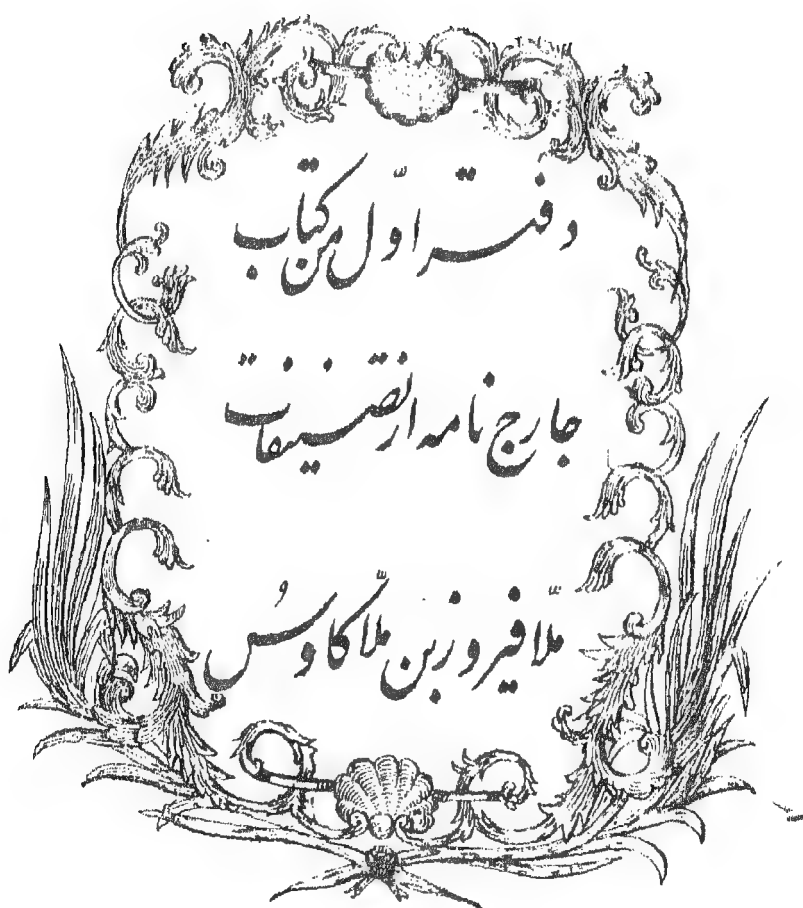 دفتر اوّل من کتاب
جارج نامه از تصنیفات
ملّا فیروز بن ملّا کاوس